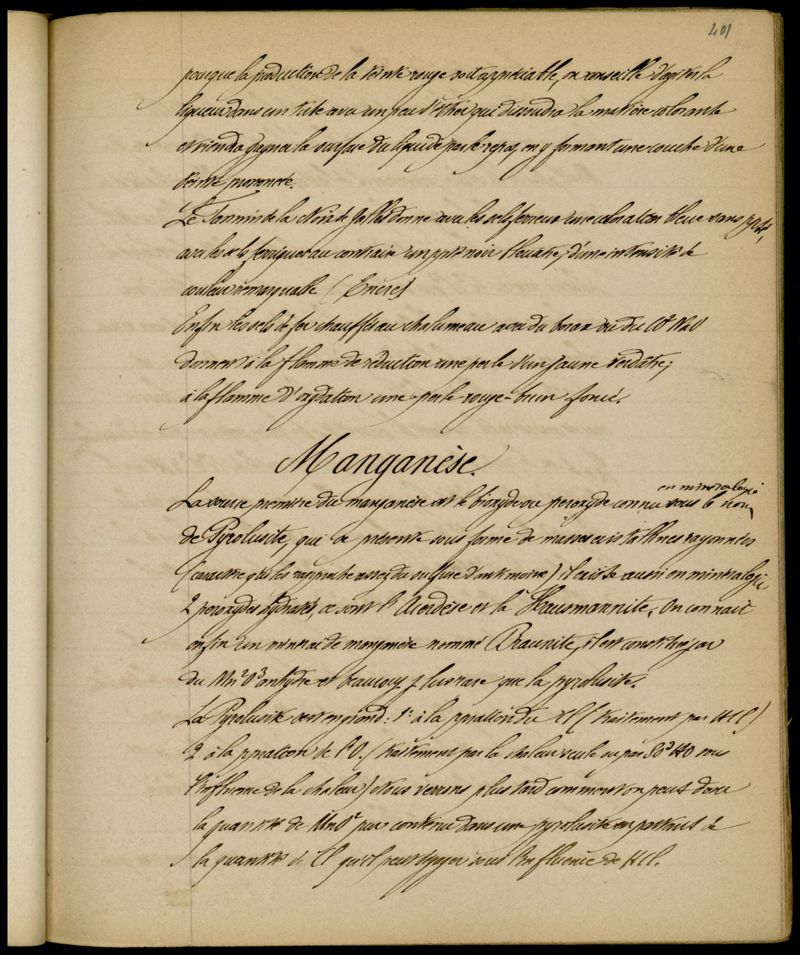 401
pour que la production de la teinte rouge soit appréciable, on conseille d'agiter la
liqueur dans un tube avec un peu d'éther qui dissoudra la matière colorante
et viendra gagner la surface du liquide par le repos, en y formant une couche d'une
teinte prononcée.
Le Tannin de la Noix de Galles donne avec les sels ferreux une coloration bleue sans ppté,
avec les sels ferriques au contraire un ppté noir bleuâtre, d'une intensité de
couleur remarquable (Encre)
Enfin les sels de fer chauffés au chalumeau avec du borax ou du NaO
donnent à la flamme de réduction une perle d'un jaune verdâtre;
à la flamme d'oxydation une perle rouge-brun foncé.
Manganèse.
en minéralogie
La source première du manganèse est le bioxyde ou peroxyde connu sous le nom
de Pyrolusite, qui se présente sous forme de masses cristallines rayonnées
(caractère qui les rapproche assez du sulfure d'antimoine) il existe aussi en minéralogie
2 peroxydes hydratés, ce sont l'Acerdèse et la Hausmannite. On connait
enfin un minerai de manganèse nommé Braunite, il est constitué par
du Mn²O³ anhydre et beaucoup plus rare que la pyrolusite.
La Pyrolusite sert en grand: 1° à la pparation du Cl (traitement par HCl)
2 à la pparation de l'O. (traitement par la chaleur seule ou par SO³HO sous
l'influence de la chaleur) Nous verrons plus tard comment on peut doser
la quantité de MnO² pur contenu dans une pyrolusite en partant de
la quantité de Cl qu'il peut dégager sous l'influence de HCl.